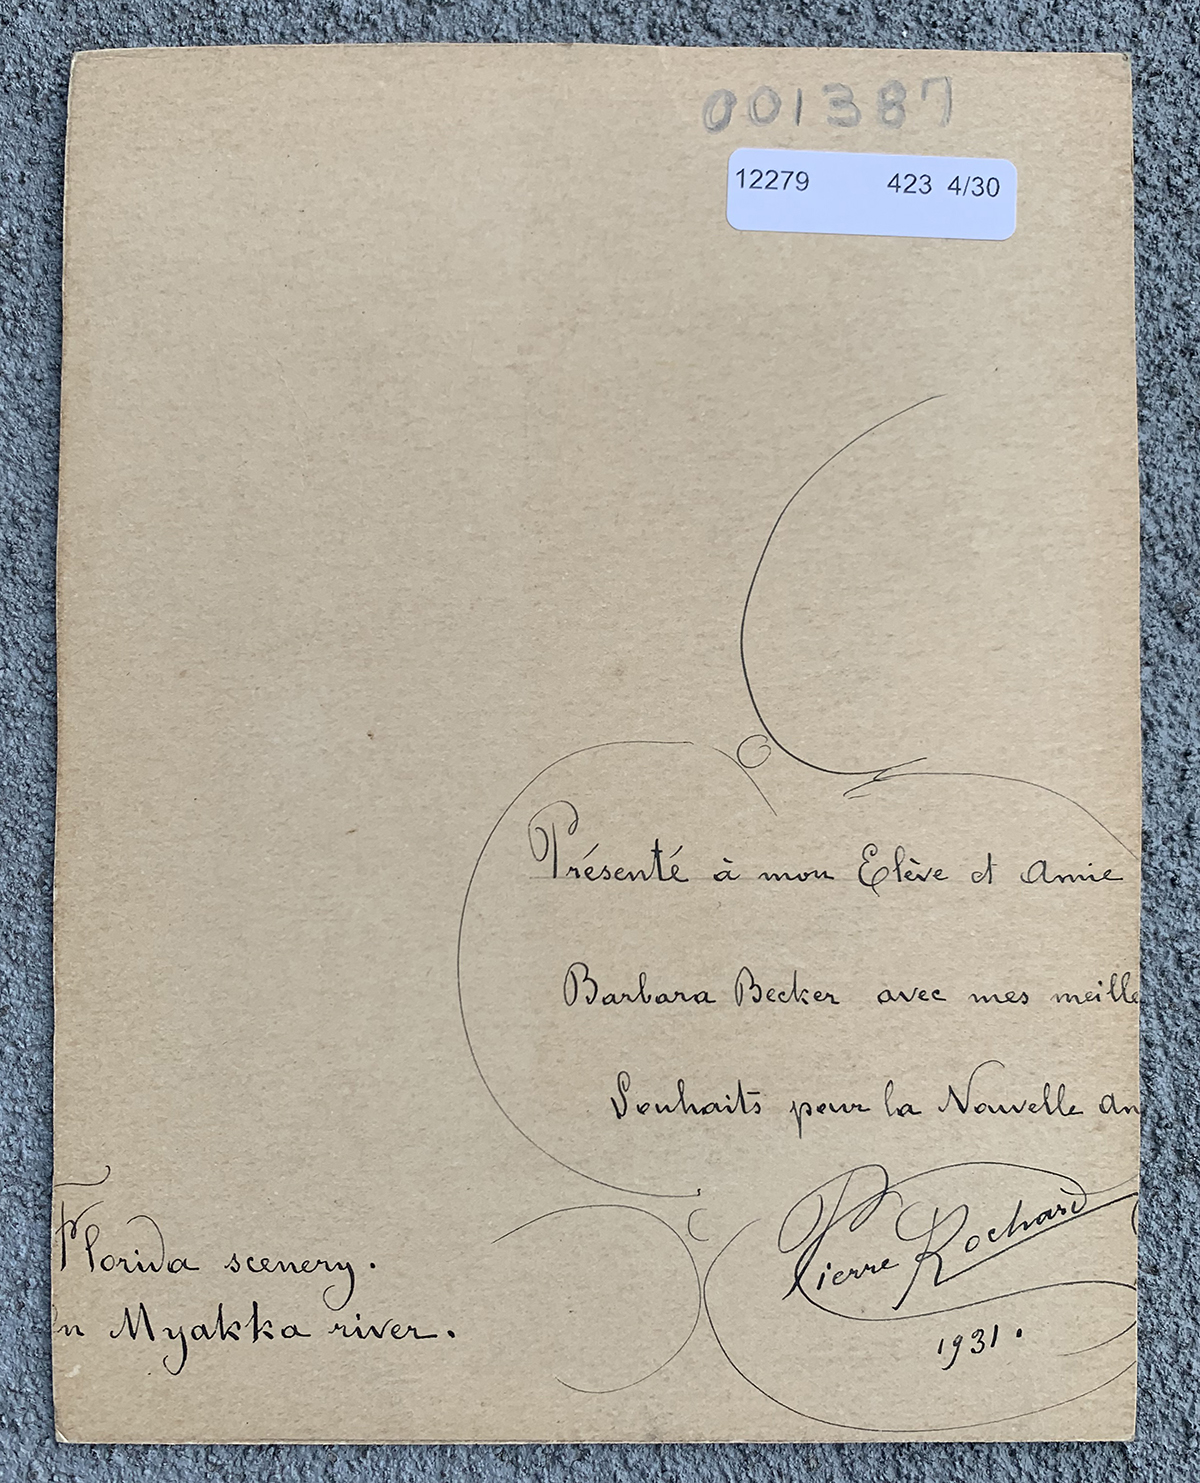 001387
12279 423 4/30
Présenté à mon Elève et Amie
Barbara Becker avec mes meille
Souhaits pour la Nouvelle An
Florida scenery.
n Myakka river.
Pierre Rochard
1931.